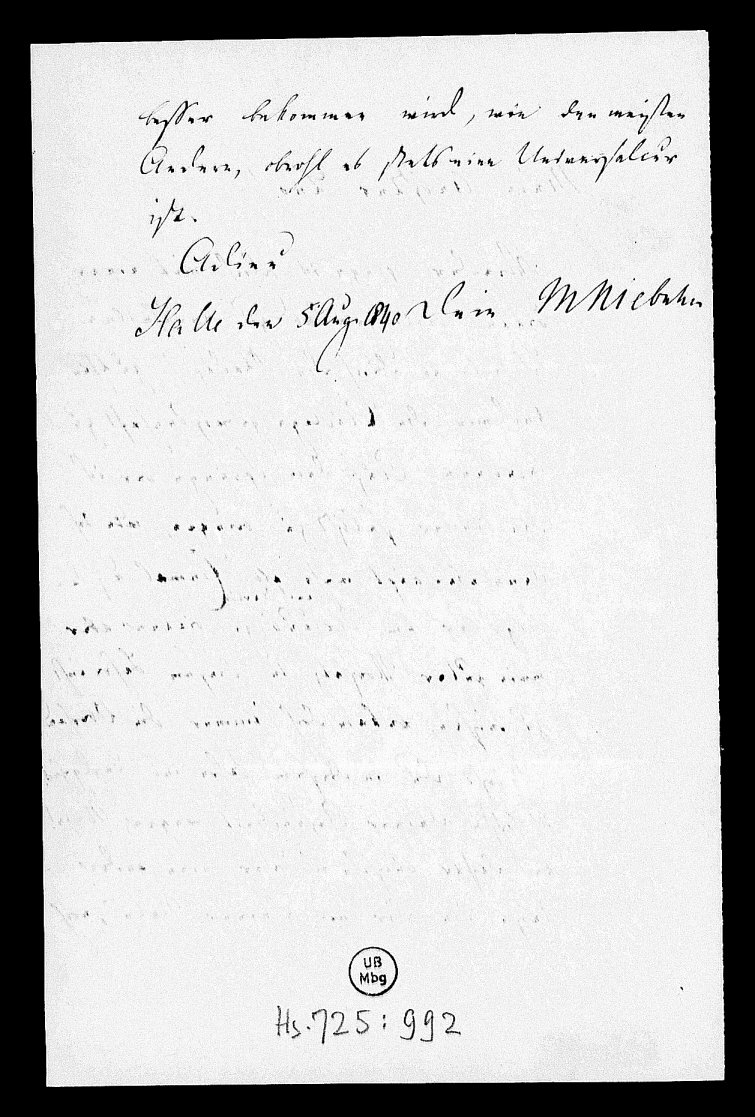 besser bekommen wird, wie den meisten
Andern, obwohl es stets eine Universalcur
ist.
Adieu
Halle den 5 Aug. 1840 Dein MNiebuhr
UB
Mbg
Hs. 725: 992